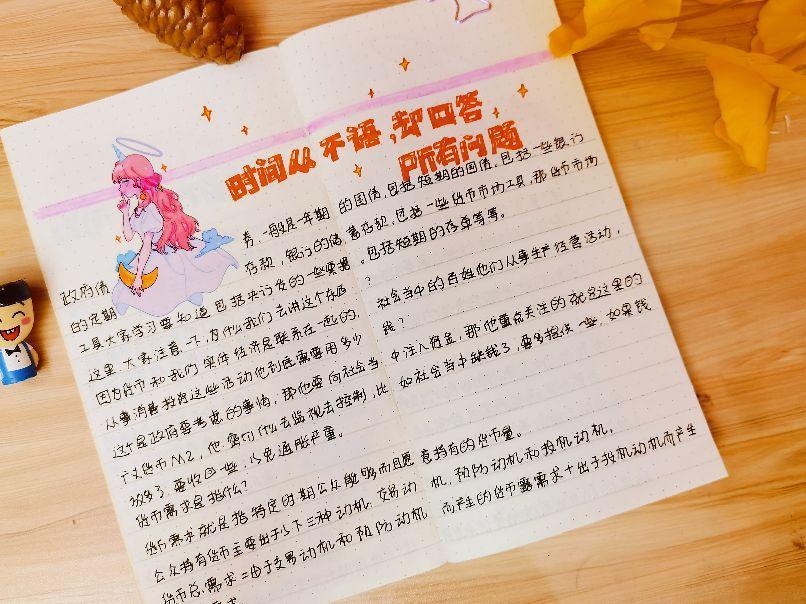 时间从不语,却回答
所有问题
政府债券,一般是一年期的国债,包括短期的国债,包括一些银行
的定期存款,银行的储蓄存款,包括一些货币市场工具,那货币市场
工具大家学习要知道包括央行发的一些票据。包括短期的存单等等。
这里,大家注意一下,为什么我们去讲这个东西?
因为货币和我们实体经济是联系在一起的,社会当中的百姓他们从事生产经营活动,
从事消费投资这些活动他到底需要用多少钱?
这个是政府要考虑的事情,那他要向社会当中注入资金,那他重点关注的就是这里的
广义货币M2,他需要什么去监视去控制,比如社会当中缺钱了,要多提供一些,如果钱
放多了,要收回一些,以免通胀严重。
货币需求是指什么?
货币需求就是指特定时期公众能够而且愿意持有的货币量。
公众持有货币主要出于以下三种动机:交易动机,预防动机和投机动机,
货币总需求=由于交易动机和预防动机而产生的货币需求+出于投机动机而产生